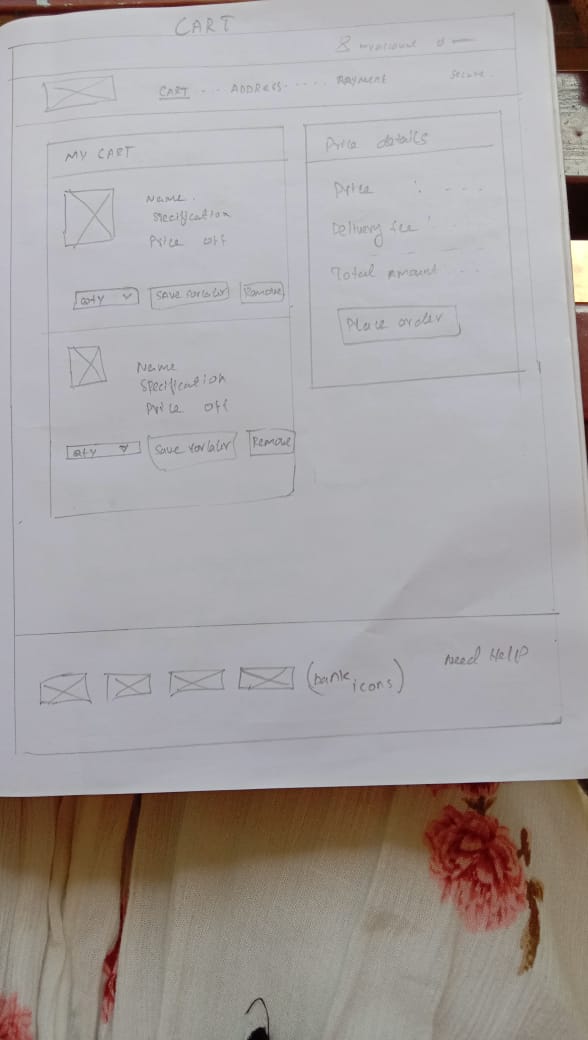 CART
myaccount
CART ... ADDRESS ..... PAYMENT
Secure.
MY CART
Name.
Specification
Price off
Qty
Save for later
Remove
Name
Specification
Price off
Qty
Save for later
Remove
Price details
Price : ---
Delivery fee :
Total amount ---
Place order
(bank icons)
Need Help